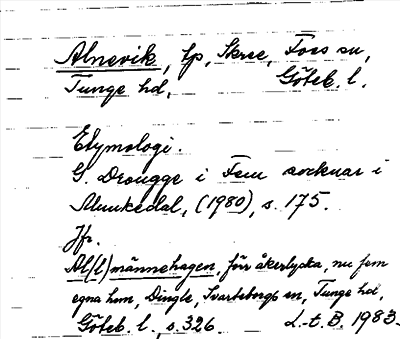 Alnevik, tp, Skree, Foss sn,
Tunge hd, Göteb. l.
Etymologi.
G. Drougge i Fem socknar i
Munkedal, (1980), s. 175.
Jfr.
Al(l)männehagen, förr åkerlycka, nu fem
egna hem, Dingle, Svarteborgs sn, Tunge hd,
Göteb. l., s. 326. L.-t. B. 1983.